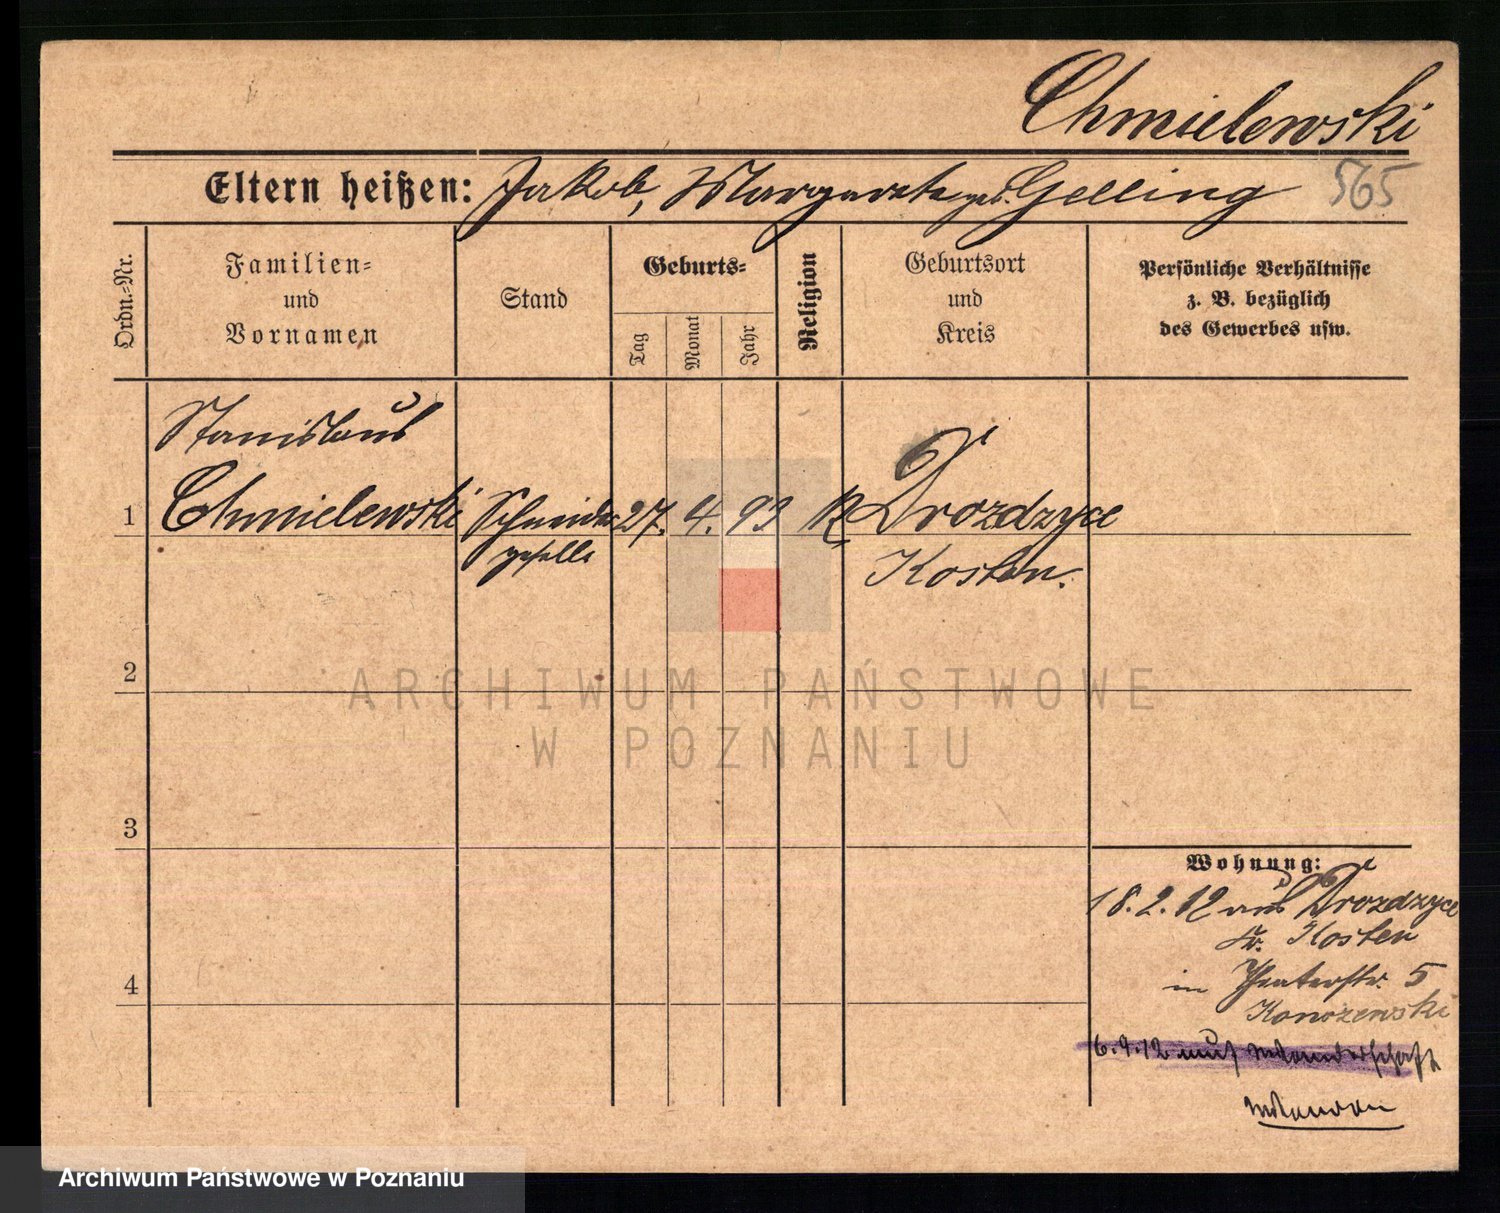 Chmielewski
Eltern heißen: Jakob, Margarete geb. Gelling 565
Ordn.-Nr.
Familien-
und
Vornamen
Stand
Geburts-
Tag
Monat
Jahr
Religion
Geburtsort
und
Kreis
Persönliche Verhältnisse
z. B. bezüglich
des Gewerbes usw.
Stanislaus
1 Chmielewski Schneider 27. 4. 93 K Drozdzyce
geselle Kosten.
2
ARCHIWUM PAŃSTWOWE
W POZNANIU
3
Wohnung:
18.2.12 aus Drozdzyce
Kr. Kosten
4 in Theaterstr. 5
6.9.12 auf Wanderschaft
Archiwum Państwowe w Poznaniu